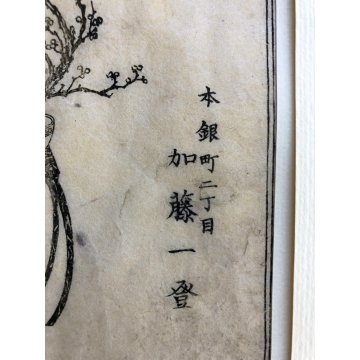 本銀町二丁目
加藤一登